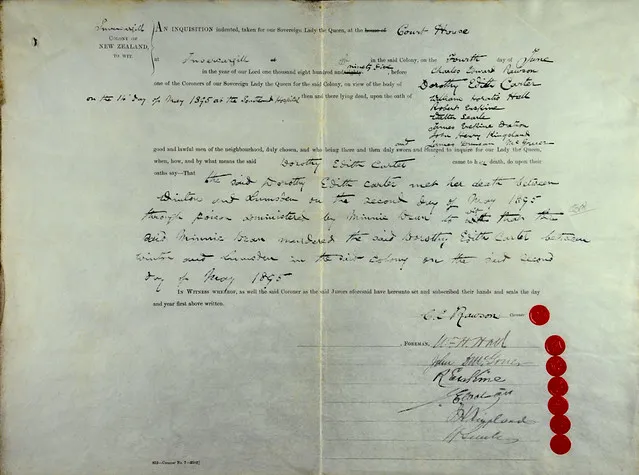 Invercargill
COLONY OF
NEW ZEALAND,
TO WIT
AN INQUISITION indented, taken for our Sovereign Lady the Queen, at the house of Court House
at Invercargill in the said Colony, on the Fourth day of June
in the year of our Lord one thousand eight hundred and eighty ninety five, before Charles Edward Rawson
one of the Coroners of our Sovereign Lady the Queen for the said Colony, on view of the body of Dorothy Edith Carter
on the 14th day of May 1895 at the Southland Hospital then and there lying dead, upon the oath of William Horatio Hall
Robert Erskine
Searle
James Erskine
John Henry Kingsland
and James Duncan
good and lawful men of the neighbourhood, duly chosen, and who being there and then duly sworn and charged to inquire for our Lady the Queen,
when, how, and by what means the said Dorothy Edith Carter came to her death, do upon their
oaths say—That
the said Dorothy Edith Carter met her death between
Winton and Lumsden on the second day of May 1895
through poison administered by Minnie Dean to wit that the
said Minnie Dean murdered the said Dorothy Edith Carter between
Winton and Lumsden in the said Colony on the said second
day of May 1895
IN WITNESS WHEREOF, as well the said Coroner as the said Jurors aforesaid have hereunto set and subscribed their hands and seals the day
and year first above written.
C E Rawson Coroner
, FOREMAN, Wm H Hall
John
R Erskine
J H Kingsland
W Searle